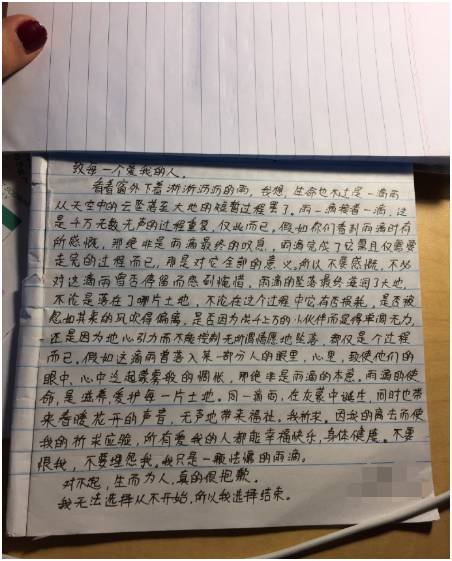 致每一个爱我的人。
看看窗外下着淅淅沥沥的雨，我想，生命也不过是一滴雨
从天空中的云坠落至大地的短暂过程罢了。雨一滴接着一滴，这
是千万无数无声的过程重复，仅此而已。假如你们看到雨滴时有
所感慨，那绝非是雨滴最终的叹息，雨滴完成了它需且仅需要
走完的过程而已，那是对它全部的意义。所以不要感慨，不必
对这滴雨曾否停留而感到惋惜，雨滴的坠落最终滋润了大地，
不论是落在了哪片土地，不论在这个过程中它有否损耗，是否被
忽如其来的风吹得偏离，是否因为成千上万的小伙伴而显得单调无力，
还是因为地心引力而不能控制无所谓情愿地坠落，都仅是个过程
而已。假如这滴雨曾落入某一部分人的眼里，心里，致使他们的
眼中，心中泛起雾雾般的惆怅，那绝非是雨滴的本意。雨滴的使
命，是滋养，爱护每一片土地。同一滴雨，在灰暴中诞生，同时也带
来春暖花开的声音，无声地带来福祉。我祈求。因我的离去而使
我的祈求应验，所有爱我的人都能幸福快乐，身体健康。不要
恨我，不要埋怨我，我只是一颗怯懦的雨滴。
对不起，生而为人，真的很抱歉。
我无法选择从不开始，所以我选择结束。